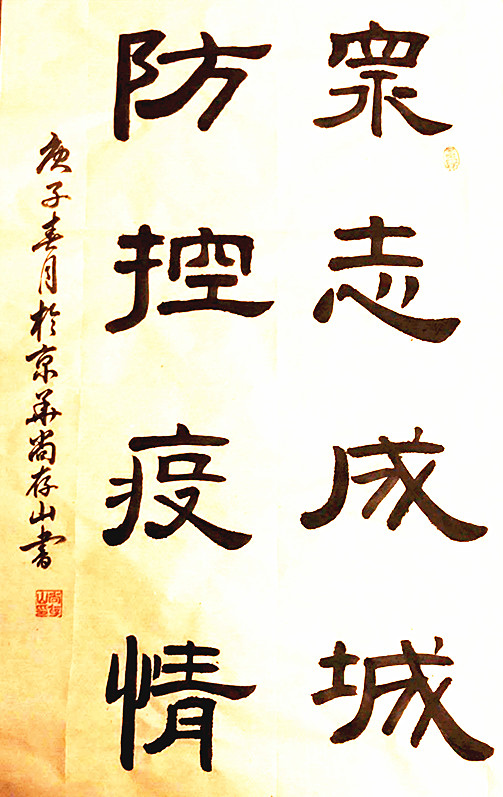 眾志成城
防控疫情
庚子春月於京華尚存山書